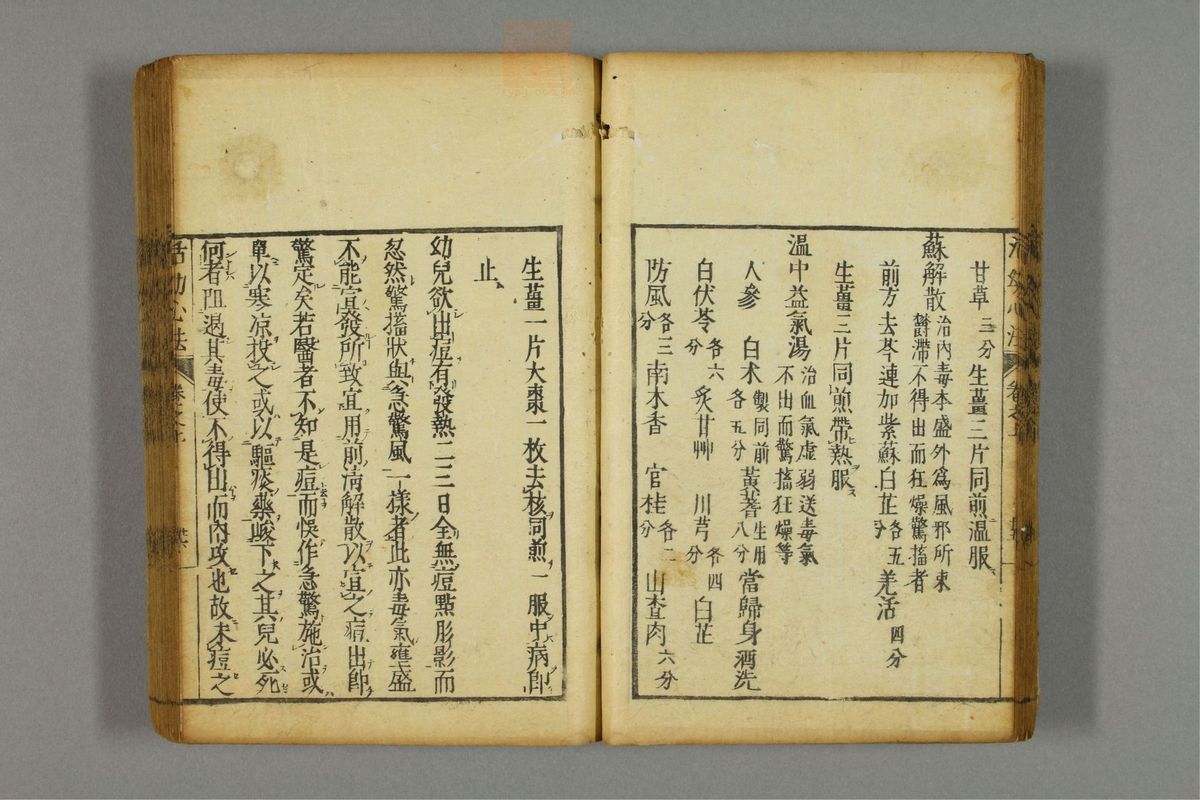 甘草三分生薑三片同煎溫服
蘇解散治內毒本盛外爲風邪所束
欝滯不得出而狂燥驚搐者
前方去芩連加紫蘇白芷各五分羌活四分
生薑三片同煎帶熱服
溫中益氣湯治血氣虛弱送毒氣
不出而驚搐狂燥等
人參 白朮製同前各五分黃耆生用八分當歸身酒洗
白伏苓各六分炙甘艸 川芎各四分白芷
防風各三分南木香 官桂各二分山查肉六分
生薑一片大棗一枚去核同煎一服中病卽
止
幼兒欲出痘有發熱二三日全無痘點形影而
忽然驚搐狀與急驚風一樣者此亦毒氣壅盛
不能宣發所致宜用前清解散以宣之痘出卽
驚定矣若醫者不知是痘而悞作急驚施治或
單以寒凉投之或以驅痰藥峻下之其兒必死
何者阻遏其毒使不得出而內攻也故未痘之
活幼心法 卷之五